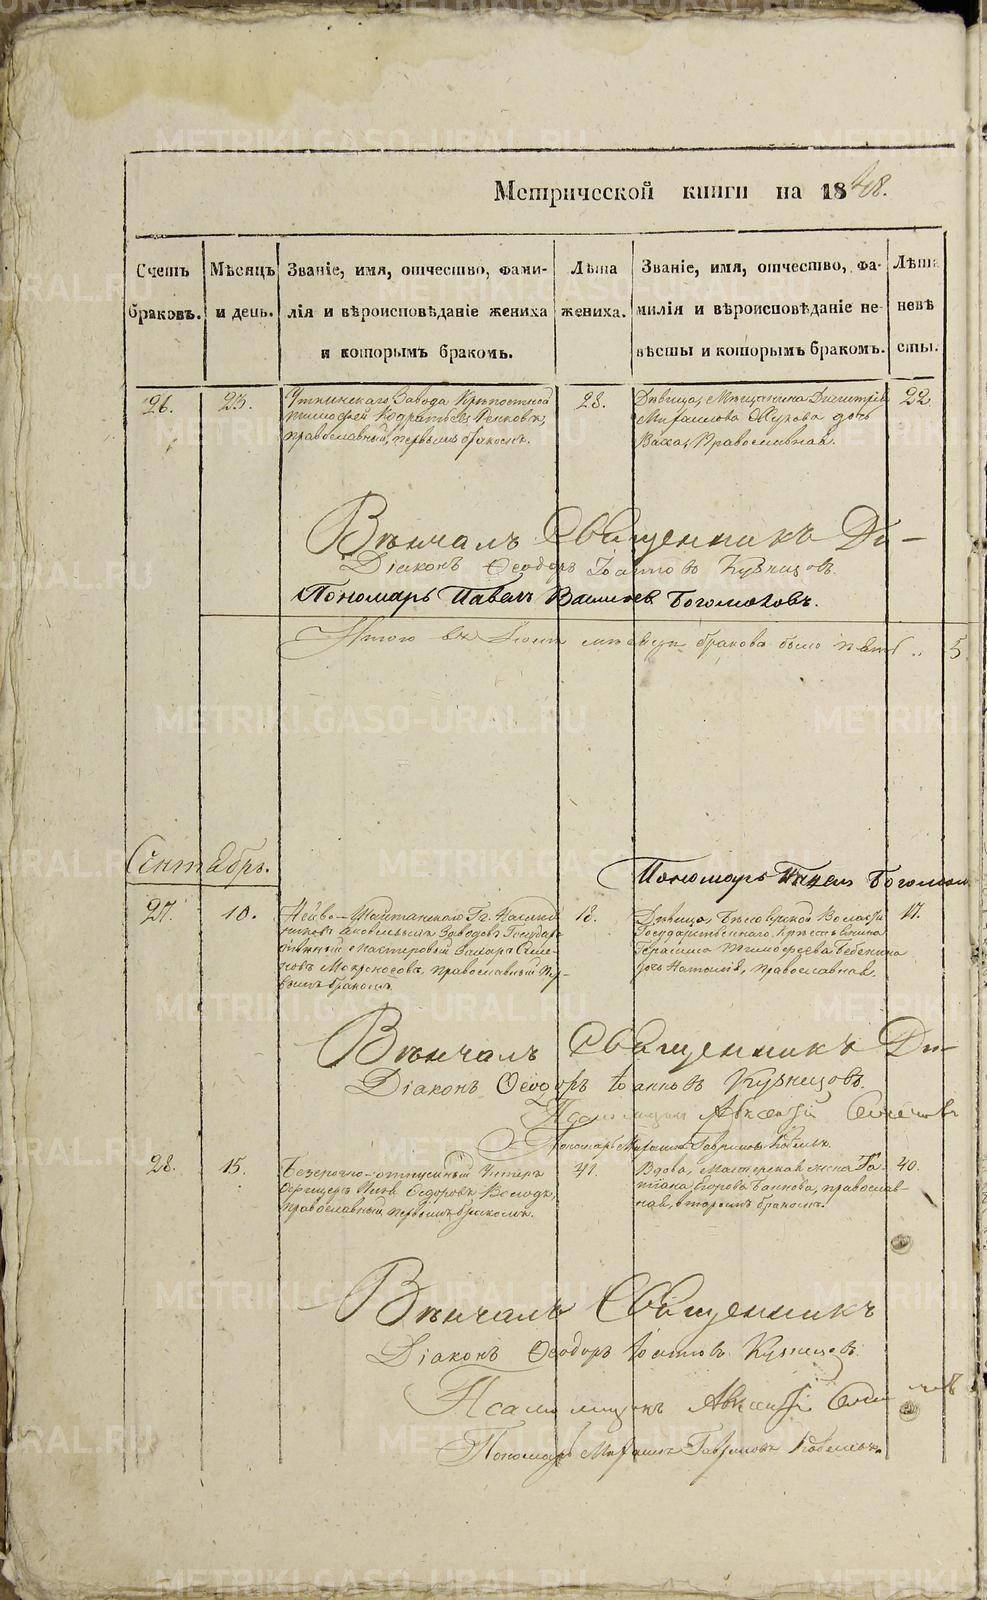 Метрической книги на 1848.
Счетъ браковъ.
Мѣсяцъ и день.
Званіе, имя, отчество, фами-
лія и вѣроисповѣданіе жениха
и которымъ бракомъ.
Лѣта жениха.
Званіе, имя, отчество, фа-
милія и вѣроисповѣданіе не-
вѣсты и которымъ бракомъ.
Лѣта невѣ сты.
26. 23.
Уткинскаго Завода Крѣпостной
Тимофей
православный, первымъ бракомъ.
28.
Дѣвица, Мѣщанина Димитрія
дочь
Васса, Православная.
22
Вѣнчалъ Священникъ Ди-
Діаконъ Ѳеодоръ Іоанновъ Кузнецовъ.
Пономарь Павелъ Васильевъ Богомоловъ.
Итого въ мѣсяцѣ браковъ было пять 5
Сентябрь.
Пономарь Павелъ Богомол
27. 10.
Нейво-Шайтанскаго Гг.
Яковлевыхъ Заводовъ Государ
ственный мастеровой Захаръ Семе
новъ Мокроносовъ, православный, пер-
вымъ бракомъ.
18.
Дѣвица, Бѣлоярской Волости
Государственнаго Крестьянина
Герасима Тимофеева Бебенина
дочь Наталія, православная.
17.
Вѣнчалъ Священникъ Ди-
Діаконъ Ѳеодоръ Іоанновъ Кузнецовъ.
Псаломщикъ Авксентій Семеновъ
Пономарь Михаилъ Гавриловъ
28. 15.
Безсрочно-отпускный Унтеръ
Офицеръ Яковъ Ѳедоровъ
православный, первымъ бракомъ.
41.
Вдова, мастерская жена Та-
тіана Егорова Баннова, православ-
ная, вторымъ бракомъ.
40.
Вѣнчалъ Священникъ
Діаконъ Ѳеодоръ Іоанновъ Кузнецовъ.
Псаломщикъ Авксентій
Пономарь Михаилъ Гавриловъ
METRIKI.GASO-URAL.RU